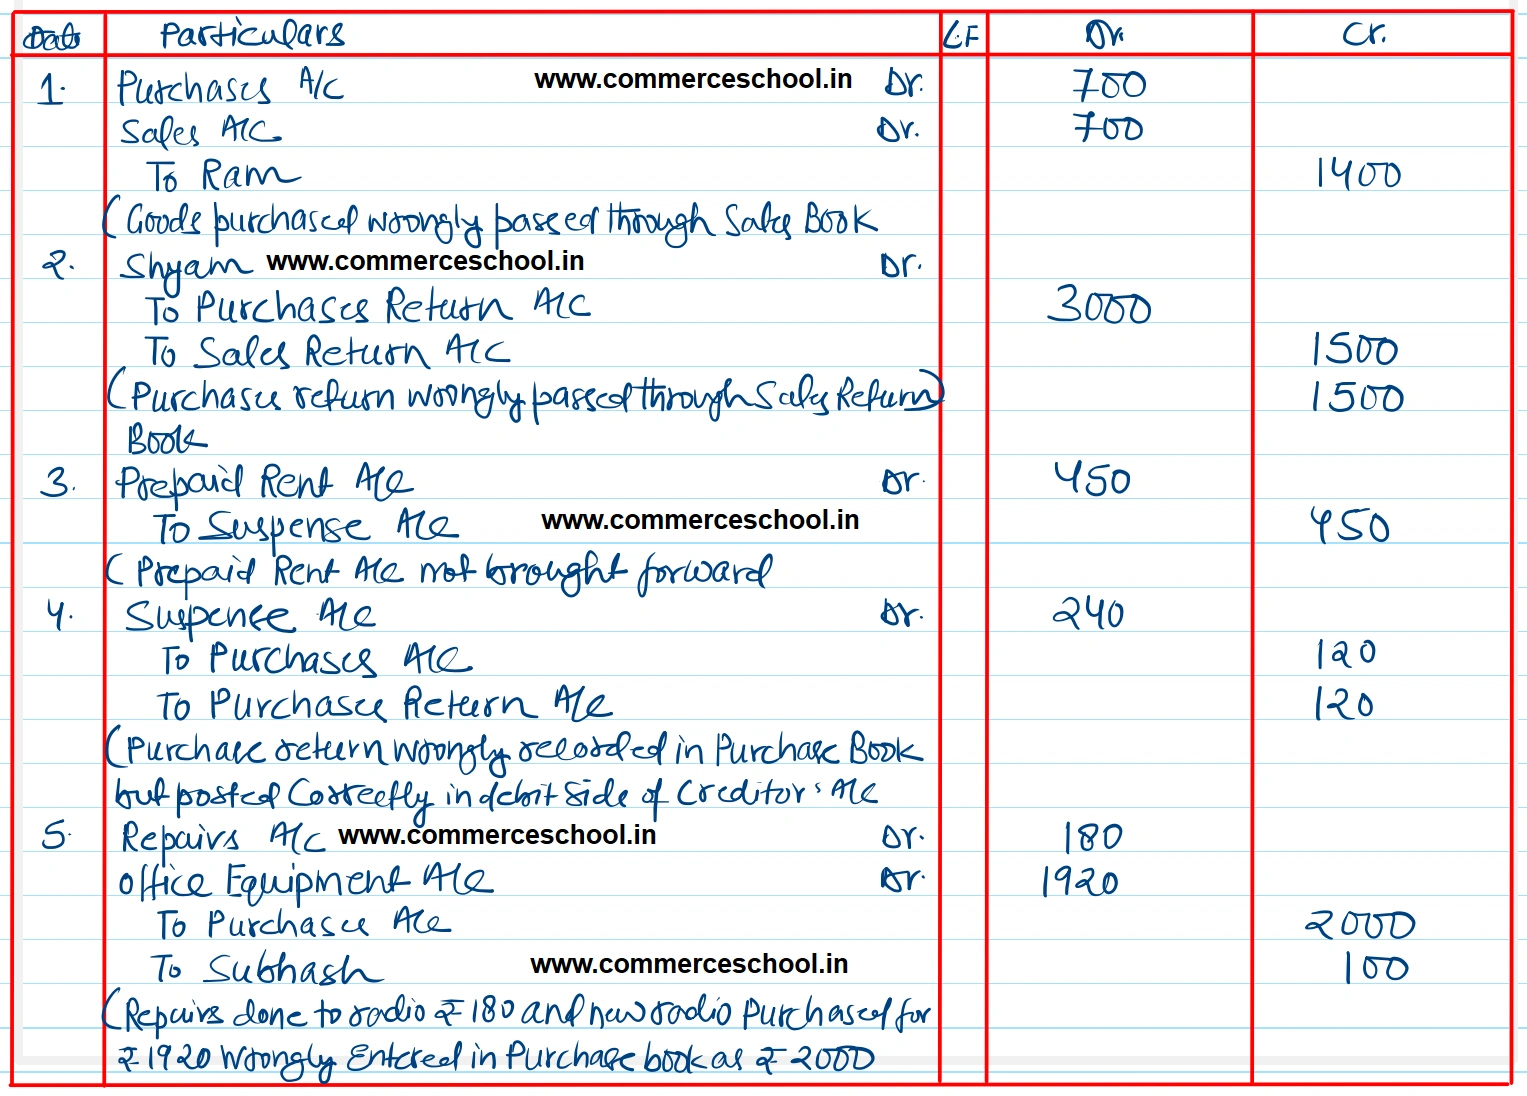 Date Particulars L.F Dr. Cr.
1. Purchases A/C www.commerceschool.in Dr. 700
Sales A/C Dr. 700
To Ram 1400
(Goods purchased wrongly passed through Sales Book
2. Shyam www.commerceschool.in Dr.
To Purchases Return A/C 3000
To Sales Return A/C 1500
(Purchases return wrongly passed through Sales Return) 1500
Book
3. Prepaid Rent A/c Dr. 450
To Suspense A/c www.commerceschool.in 450
(Prepaid Rent A/c not brought forward
4. Suspense A/c Dr. 240
To Purchases A/c 120
To Purchases Return A/c 120
(Purchase return wrongly recorded in Purchase Book
but posted Correctly in debit side of Creditor's A/c
5. Repairs A/c www.commerceschool.in Dr. 180
Office Equipment A/c Dr. 1920
To Purchases A/c 2000
To Subhash www.commerceschool.in 100
(Repairs done to radio ₹ 180 and new radio Purchased for
₹ 1920 Wrongly Entered in Purchase book as ₹ 2000